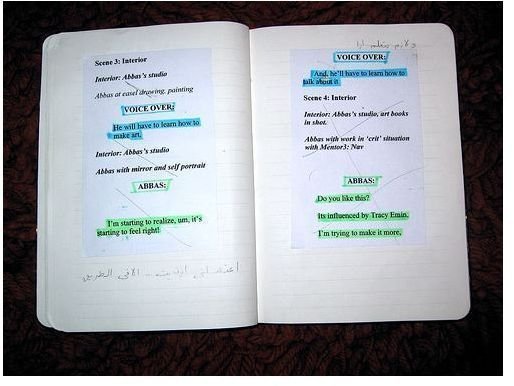 Scene 3: Interior
Interior: Abbas's studio
Abbas at easel drawing, painting
VOICE OVER:
He will have to learn how to
make art.
Interior: Abbas's studio
Abbas with mirror and self portrait
ABBAS:
I'm starting to realize, um, it's
starting to feel right!
VOICE OVER:
And, he'll have to learn how to
talk about it.
Scene 4: Interior
Interior: Abbas's studio, art books
in shot.
Abbas with work in 'crit' situation
with Mentor3: Nav
ABBAS:
Do you like this?
Its influenced by Tracy Emin.
I'm trying to make it more,